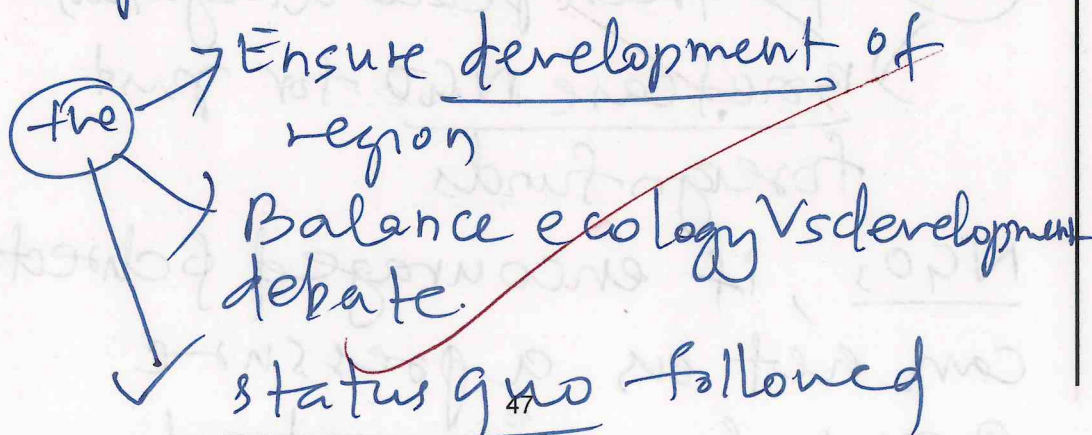 +ve
Ensure development of
region
Balance ecology Vs development
debate.
status quo followed
47